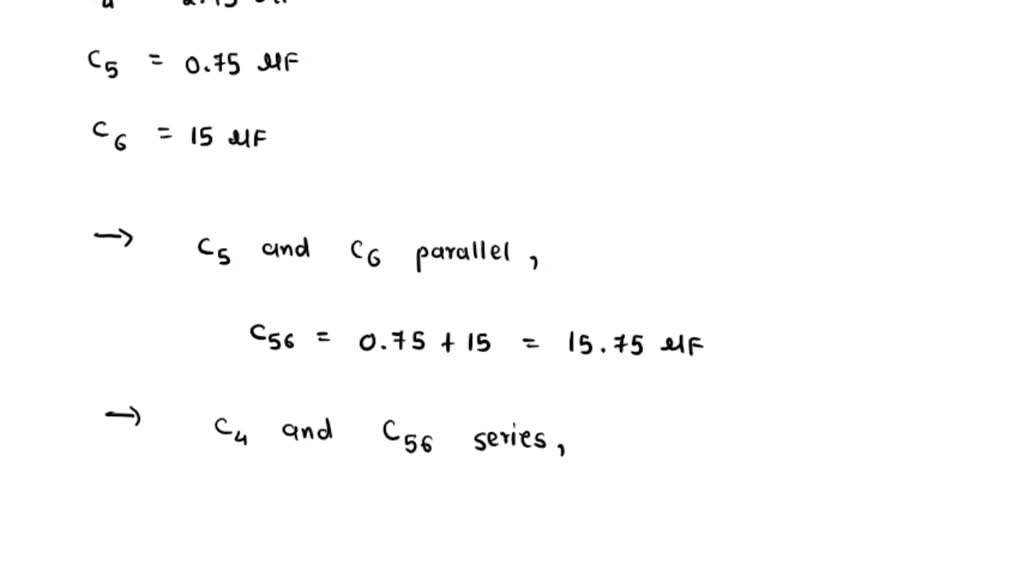 C5 = 0.75 μF
C6 = 15 μF
→ C5 and C6 parallel,
C56 = 0.75 + 15 = 15.75 μF
→ C4 and C56 series,